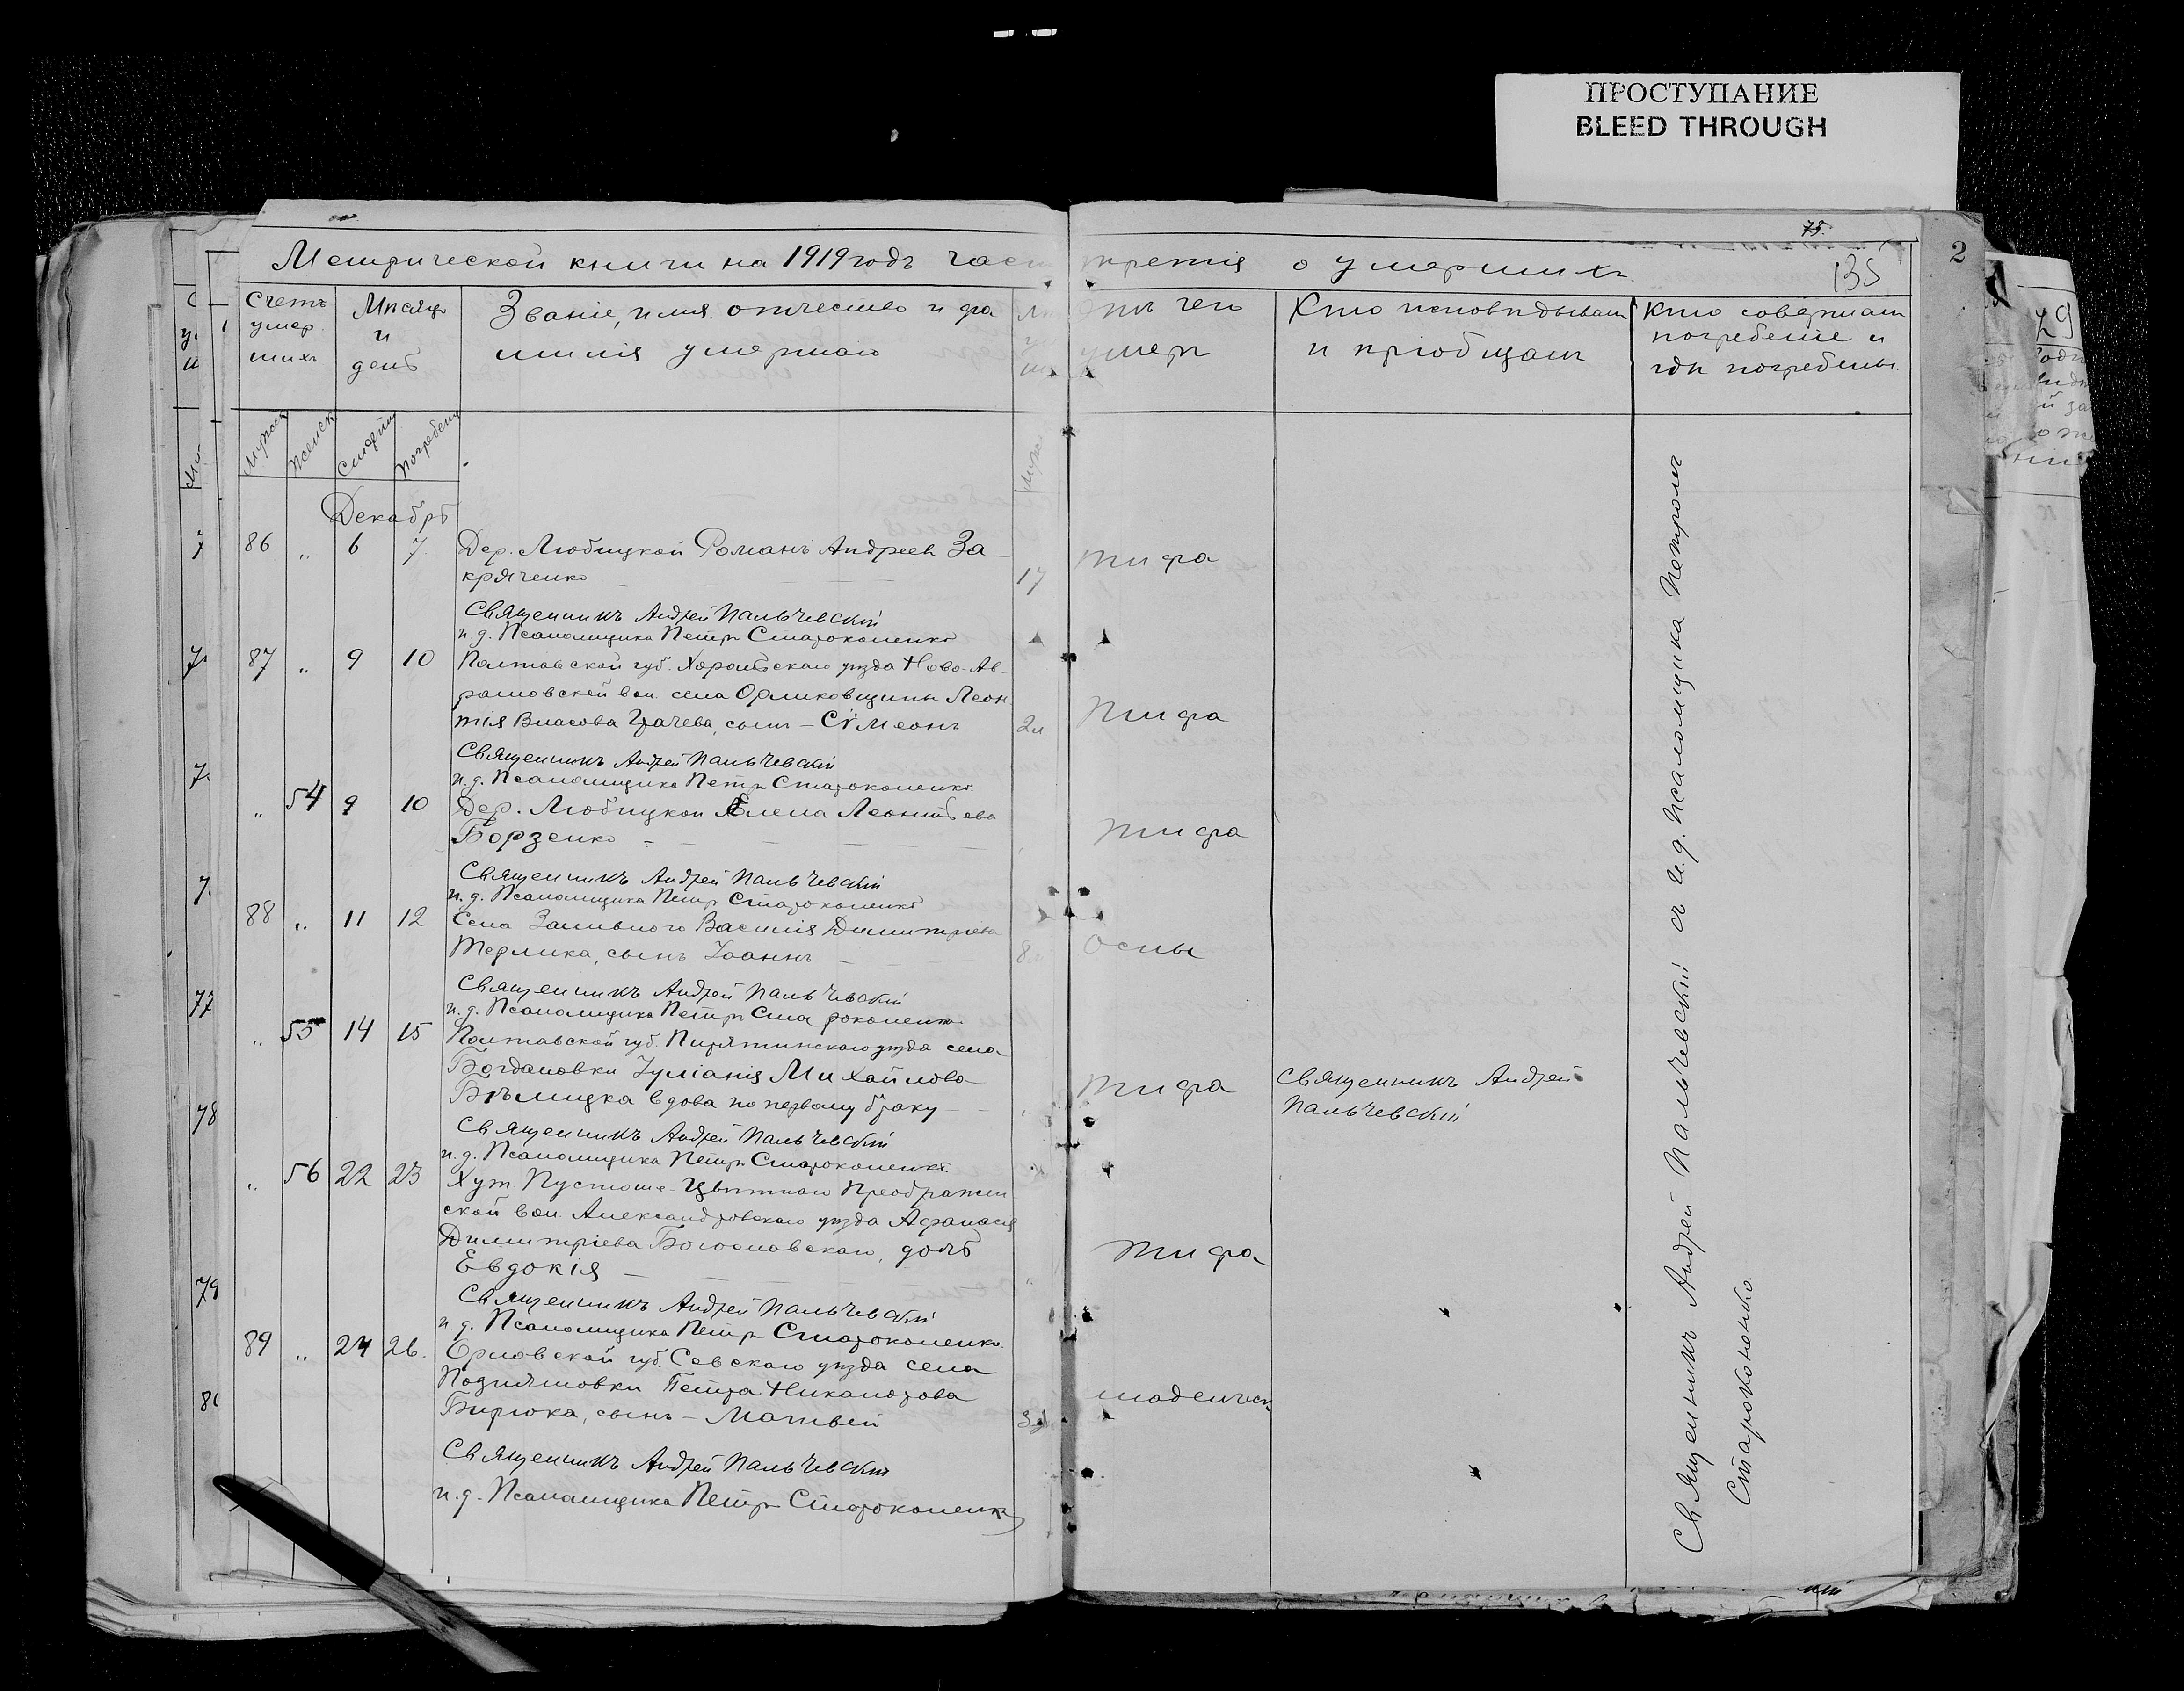 ПРОСТУПАНИЕ
BLEED THROUGH
75.
135
2
Метрической книги на 1919 годъ част третія о умершихъ
Счетъ умерших
Мѣсяцъ и день
Званіе, имя, отчество и фамилія умершаго
отъ чего умеръ
Кто исповѣдывалъ и пріобщалъ
Кто совершалъ погребеніе и гдѣ погребены.
Мужск
Женск
Смерти
Погребені
Декабрь
86 „ 6 7 Дер. Любицкой Романъ Андреевъ За-
кряченко 17 тифа
Священникъ Андрей Пальчевскій
и. д. Псаломщика Петръ Староконенко
87 „ 9 10 Полтавской губ. Хорольскаго уѣзда Ново-Ав-
рамовской вол. села Орликовщины Леон
тія Власова Грачева, сынъ - Сѵмеонъ 2м тифа
Священникъ Андрей Пальчевскій
и. д. Псаломщика Петръ Староконенко
„ 54 9 10 Дер. Любицкой Елена Леонтьева
Борзенко тифа
Священникъ Андрей Пальчевскій
и. д. Псаломщика Петръ Староконенко
88 „ 11 12 Села Заливного Василія Димитріева
Терлика, сынъ Іоаннъ 8м Оспы
Священникъ Андрей Пальчевскій
и. д. Псаломщика Петръ Староконенко
„ 55 14 15 Полтавской губ. Пирятинскаго уѣзда села
Богдановки Іуліанія Михайлова
Бѣлицка вдова по первому браку тифа Священникъ Андрей
Пальчевскій
Священникъ Андрей Пальчевскій
и. д. Псаломщика Петръ Староконенко.
„ 56 22 23 Хут. Пустоше-Цвѣтнаго Преображен
ской вол. Александровскаго уѣзда Афанасія
Димитріева Богославскаго, дочь
Евдокія тифа
Священникъ Андрей Пальчевскій
и. д. Псаломщика Петръ Староконенко.
89 „ 24 26. Орловской губ. Севскаго уѣзда села
Петра Никанорова
Бирюка, сынъ - Матвей младенческ
Священникъ Андрей Пальчевскій
и. д. Псаломщика Петръ Староконенко
Священникъ Андрей Пальчевскій съ и. д. Псаломщика Петромъ
Староконенко.
77
78
79